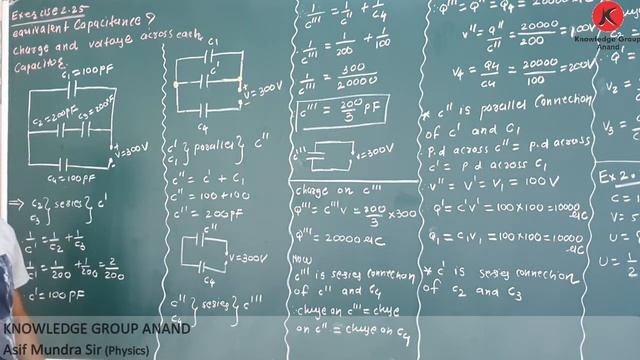 Exercise 2.25
equivalent Capacitance?
charge and voltage across each
Capacitor.
C1=100PF
C2=200PF C3=200PF
V=300V
C4=100PF
⇒ C2 } series } C'
C3
1/C' = 1/C2 + 1/C3
1/C' = 1/200 + 1/200 = 2/200
C' = 100PF
C1
C'
C4
V=300V
C' } parallel } C''
C1
C'' = C' + C1
C'' = 100+100
C'' = 200PF
C''
V=300V
C4
C'' } series } C'''
C4
1/C''' = 1/C'' + 1/C4
1/C''' = 1/200 + 1/100
1/C''' = 300/20000
C''' = 200/3 PF
C''' V=300V
charge on C'''
Q''' = C'''V = 200/3 × 300
Q''' = 20000 μμC
Now
C''' is series connection
of C'' and C4
charge on C''' = charge
on C'' = charge on C4
Q''' = Q'' = Q4 = 20000
V'' = Q''/C'' = 20000/200 = 100V
V4 = Q4/C4 = 20000/100 = 200V
* C'' is parallel connection
of C' and C1
P.d across C'' = P.d across
C' = P d across C1
V'' = V' = V1 = 100V
Q' = C'V' = 100×100 = 10000
Q1 = C1V1 = 100×100 = 10000
* C' is series connection
of C2 and C3
Q' =
V2 =
V3 =
Ex 2.
C =
V =
U =
U = 1/2
K
Knowledge Group
Anand
KNOWLEDGE GROUP ANAND
Asif Mundra Sir (Physics)